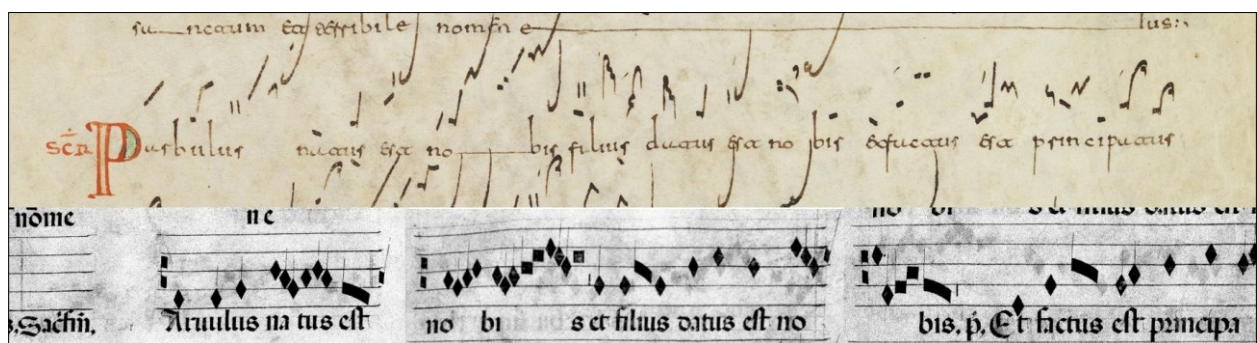 sa nctum Et terribile nomen e ius:
SCR Parbulus natus est no bis filius datus est no bis et factus est principatus
nōme ne no bi s et filius datus est
Aruulus na tus est no bi s et filius datus est no bis. p. Et factus est principa